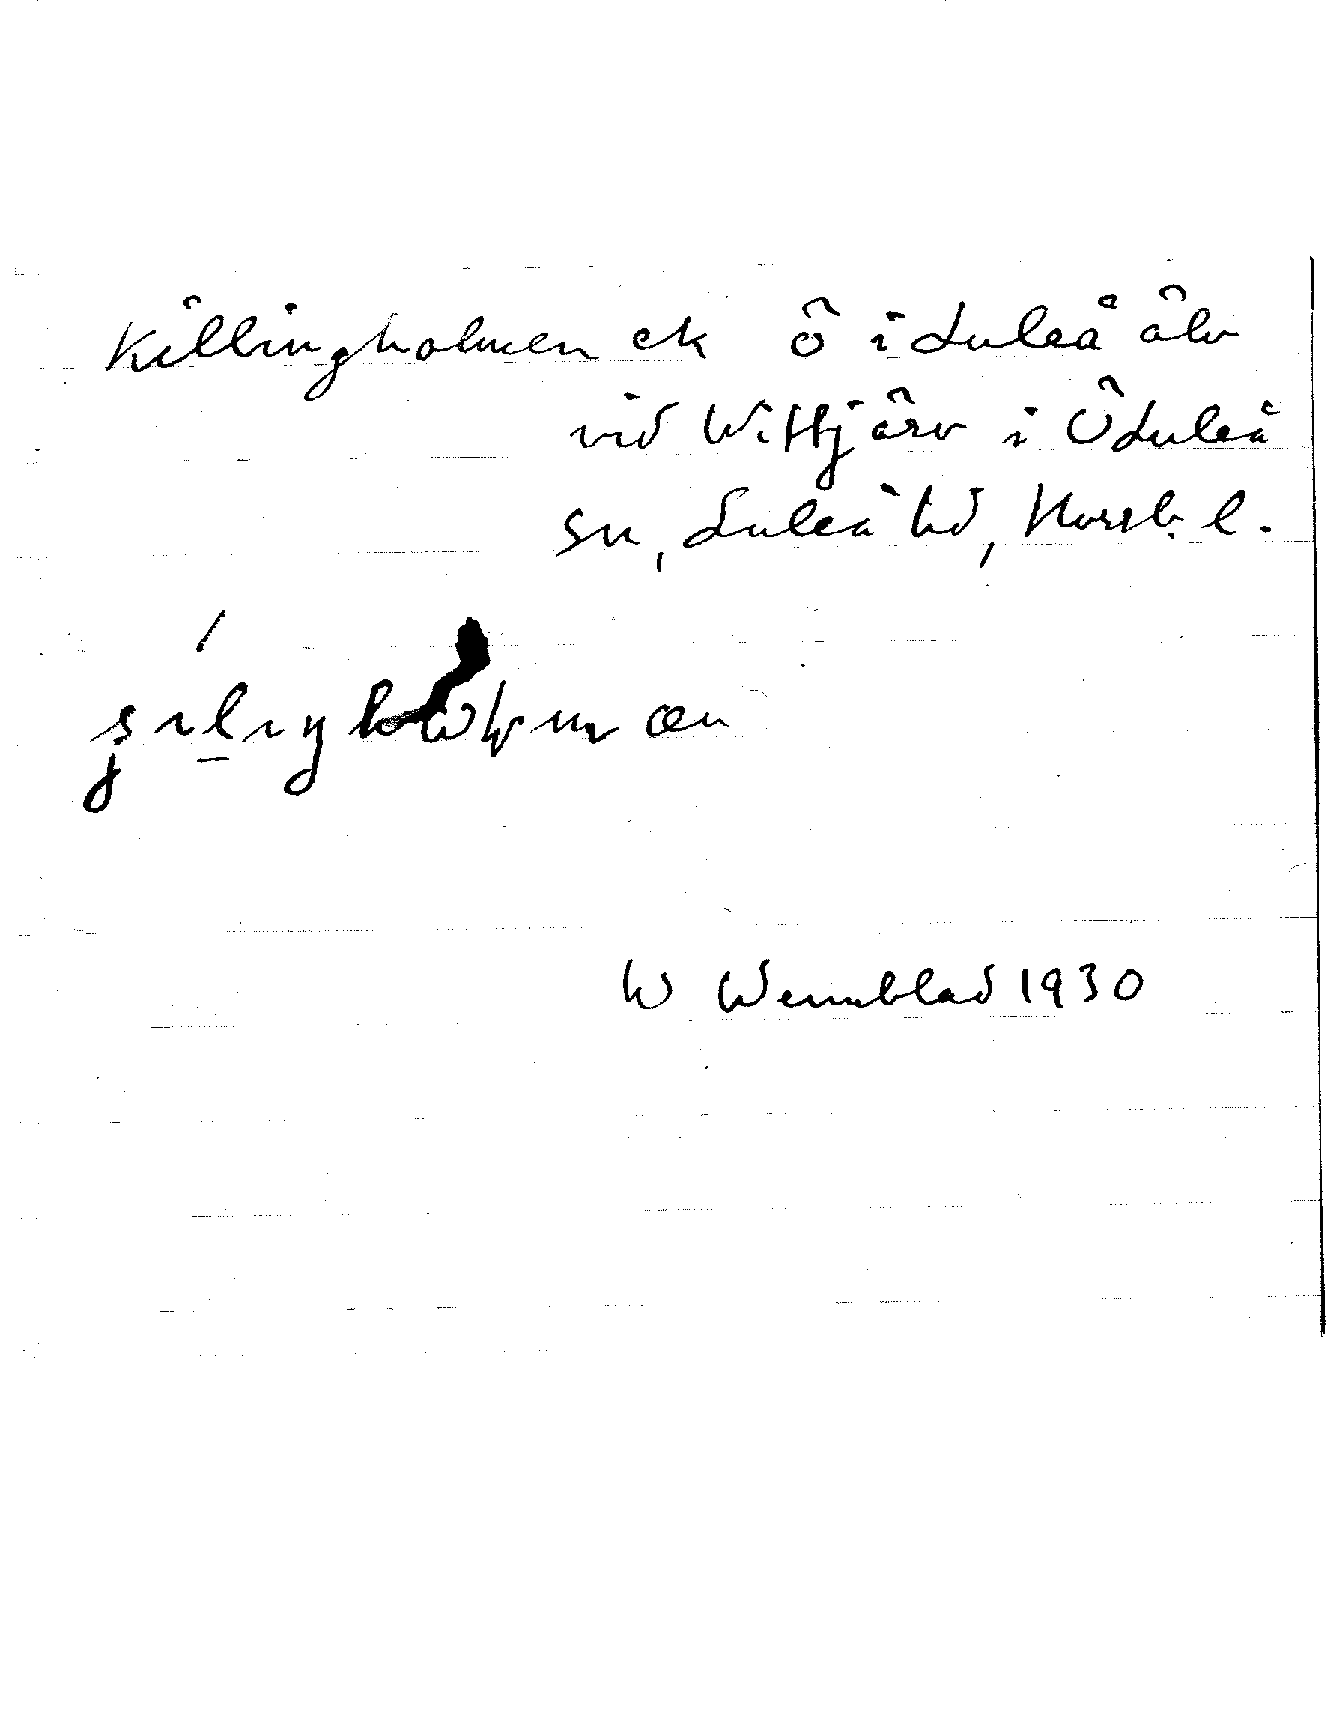 Killingholmen ek ö i Luleå älv
vid Wittjärv i ÖLuleå
sn, Luleå td, Norrb. l.
W Wennblad 1930